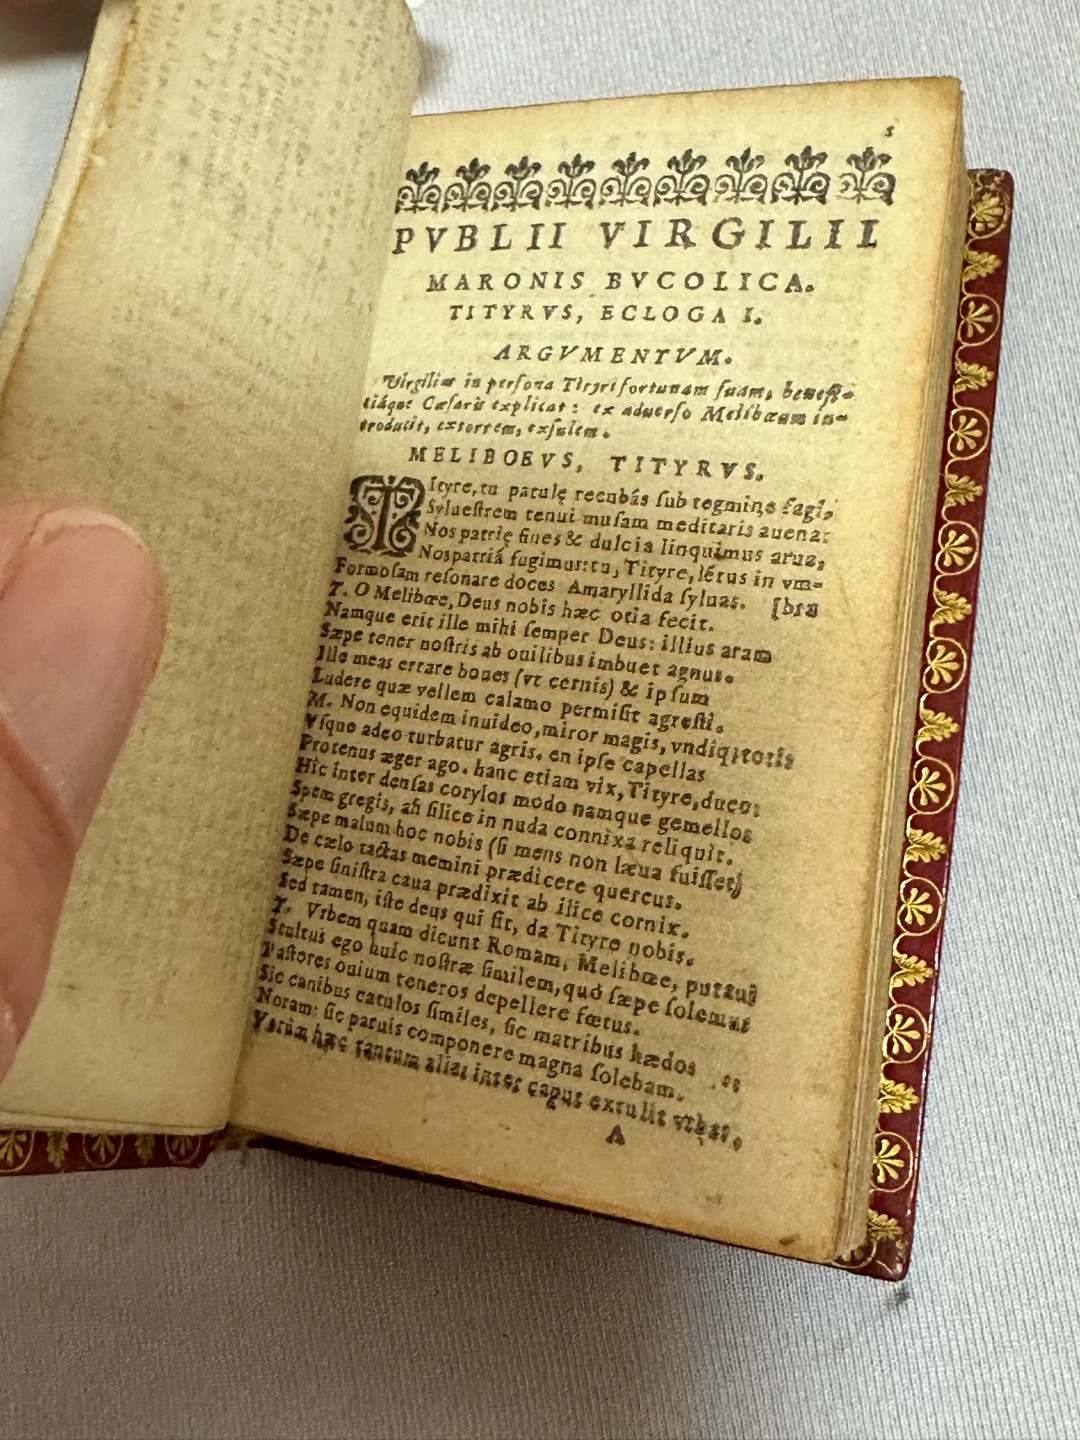 1
PVBLII VIRGILII
MARONIS BVCOLICA.
TITYRVS, ECLOGA I.
ARGVMENTVM.
Virgilius in persona Tityri fortunam suam, benefi-
ciáque Cæsaris explicat: ex aduerso Melibœum in-
troducit, extorrem, exsulem.
MELIBOEVS, TITYRVS.
TItyre, tu patulę recubás ſub tegmine fagi,
Sylueſtrem tenui muſam meditaris auena:
Nos patrię fines & dulcia linquimus arua,
Nos patriá fugimus: tu, Tityre, létus in vm-
Formoſam reſonare doces Amaryllida ſyluas. [bra
T. O Melibœe, Deus nobis hæc otia fecit.
Namque erit ille mihi ſemper Deus: illius aram
Sæpe tener noſtris ab ouilibus imbuet agnus.
Ille meas errare boues (vt cernis) & ipſum
Ludere quæ vellem calamo permiſit agreſti.
M. Non equidem inuideo, miror magis, vndiq; totis
Vſque adeo turbatur agris. en ipſe capellas
Protenus æger ago. hanc etiam vix, Tityre, duco:
Hic inter denſas corylos modo namque gemellos
Spem gregis, ah ſilice in nuda connixa reliquit.
Sæpe malum hoc nobis (ſi mens non læua fuiſſet)
De cælo tactas memini prædicere quercus.
Sæpe ſiniſtra caua prædixit ab ilice cornix.
Sed tamen, iſte deus qui ſit, da Tityre nobis.
T. Vrbem quam dicunt Romam, Melibœe, putaui
Stultus ego huic noſtræ ſimilem, quò ſæpe ſolemus
Paſtores ouium teneros depellere fœtus.
Sic canibus catulos ſimiles, ſic matribus hædos
Noram: ſic paruis componere magna ſolebam.
Verùm hæc tantum alias inter caput extulit vrbes,
A